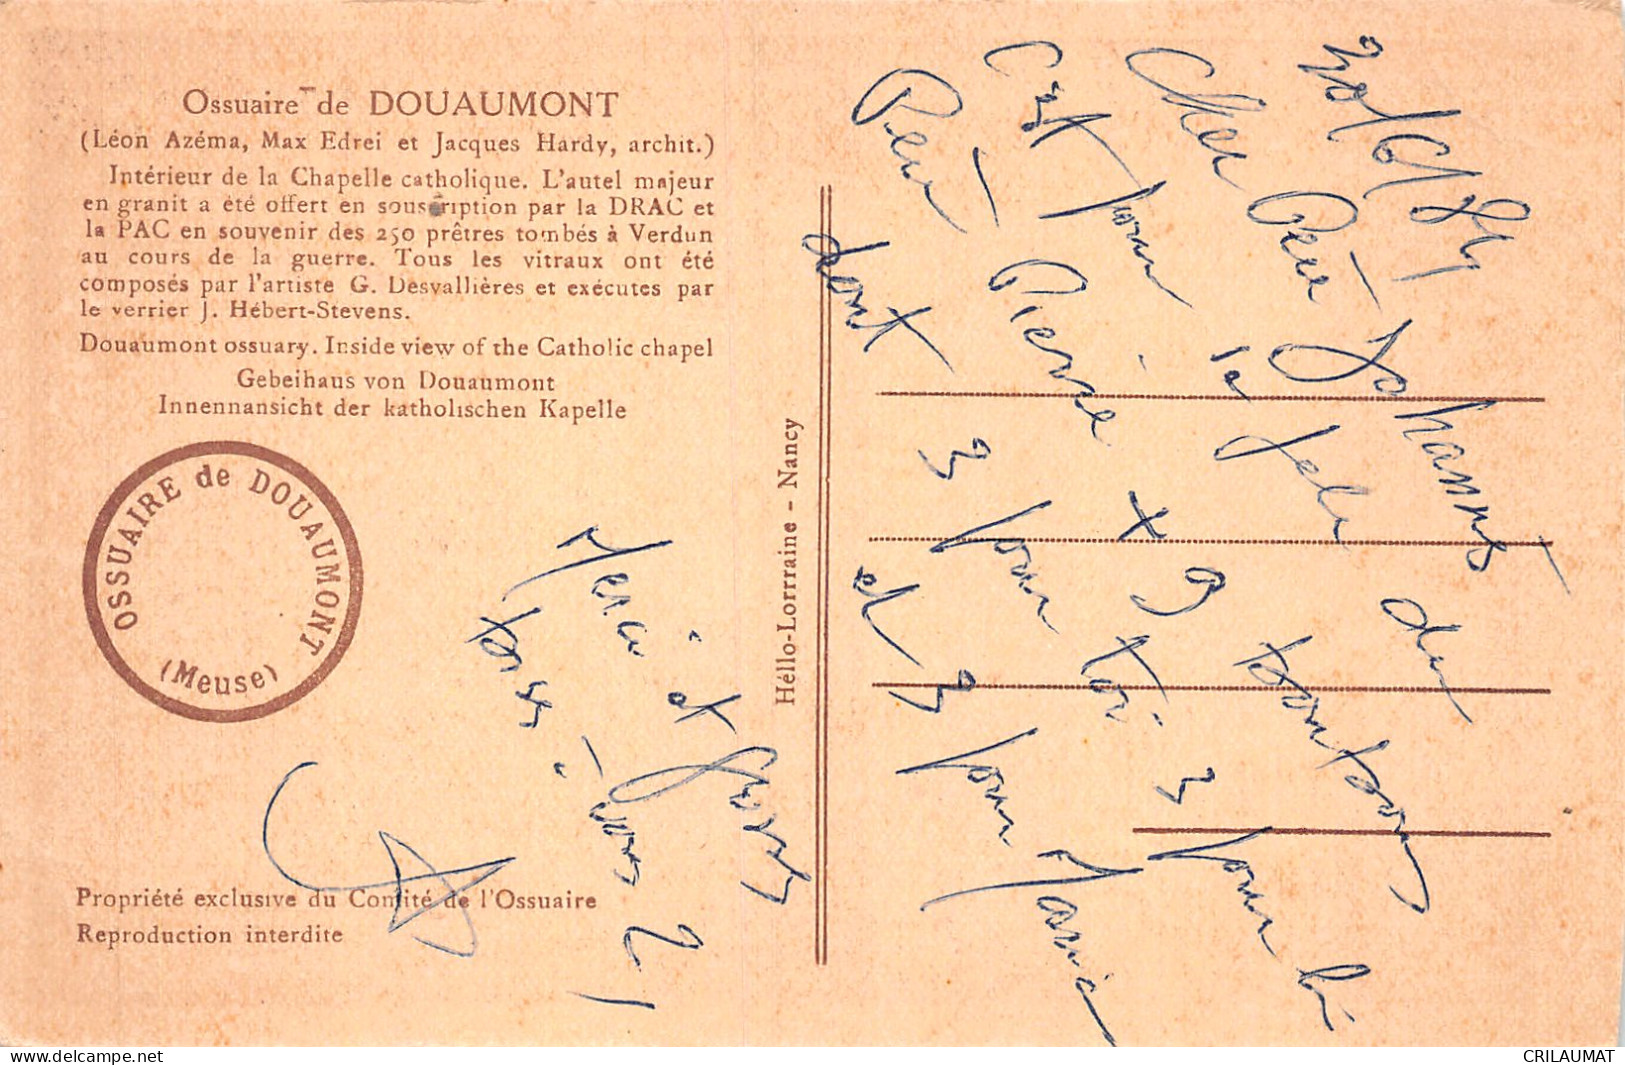 Ossuaire de DOUAUMONT
(Léon Azéma, Max Edrei et Jacques Hardy, archit.)
Intérieur de la Chapelle catholique. L'autel majeur
en granit a été offert en souscription par la DRAC et
la PAC en souvenir des 250 prêtres tombés à Verdun
au cours de la guerre. Tous les vitraux ont été
composés par l'artiste G. Desvallières et exécutes par
le verrier J. Hébert-Stevens.
Douaumont ossuary. Inside view of the Catholic chapel
Gebeihaus von Douaumont
Innennansicht der katholischen Kapelle
OSSUAIRE de DOUAUMONT
(Meuse)
Propriété exclusive du Comité de l'Ossuaire
Reproduction interdite
Héllo-Lorraine - Nancy
Cher Père Johannes
C'est pour la fete du
Père Pierre + 9 bonbons
dont 3 pour toi 3 pour lui
et 3 pour
Merci et
bises à vous 2
CRILAUMAT